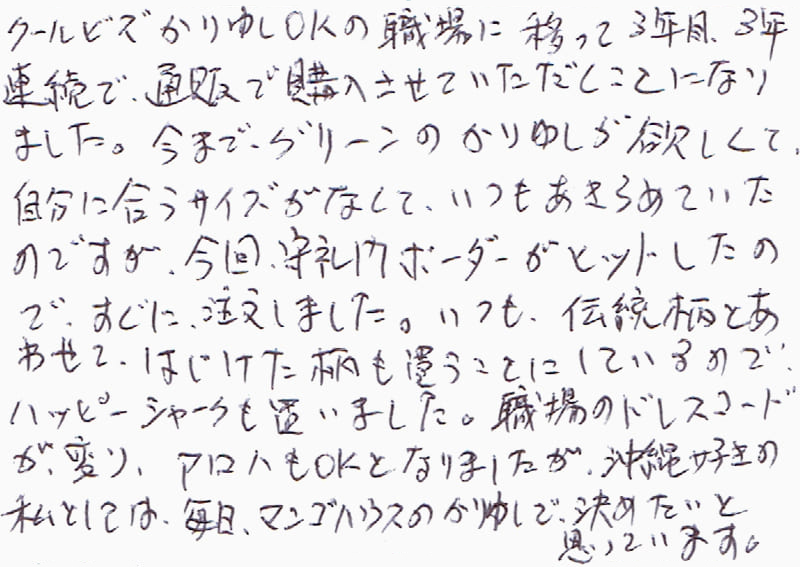 クールビズかりゆしOKの職場に移って3年目、3年
連続で、通販で購入させていただくことになり
ました。今まで、グリーンのかりゆしが欲しくて、
自分に合うサイズがなくて、いつもあきらめていた
のですが、今回、守礼門ボーダーがヒットしたの
で、すぐに、注文しました。いつも、伝統柄とあ
わせて、はじけた柄も買うことにしているので、
ハッピーシャークも買いました。職場のドレスコード
が、変り、アロハもOKとなりましたが、沖縄好きの
私としては、毎日、マンゴハウスのかりゆしで、決めたいと
思っています。